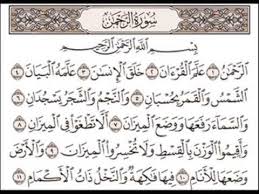 سُورَةُ الرَّحْمَٰن
بِسْمِ اللَّهِ الرَّحْمَٰنِ الرَّحِيمِ
الرَّحْمَٰنُ ١ عَلَّمَ الْقُرْءَانَ ٢ خَلَقَ الْإِنسَٰنَ ٣ عَلَّمَهُ الْبَيَانَ ٤
الشَّمْسُ وَالْقَمَرُ بِحُسْبَانٍ ٥ وَالنَّجْمُ وَالشَّجَرُ يَسْجُدَانِ ٦
وَالسَّمَاءَ رَفَعَهَا وَوَضَعَ الْمِيزَانَ ٧ أَلَّا تَطْغَوْا فِي الْمِيزَانِ ٨
وَأَقِيمُوا الْوَزْنَ بِالْقِسْطِ وَلَا تُخْسِرُوا الْمِيزَانَ ٩ وَالْأَرْضَ
وَضَعَهَا لِلْأَنَامِ ١٠ فِيهَا فَٰكِهَةٌ وَالنَّخْلُ ذَاتُ الْأَكْمَامِ ١١